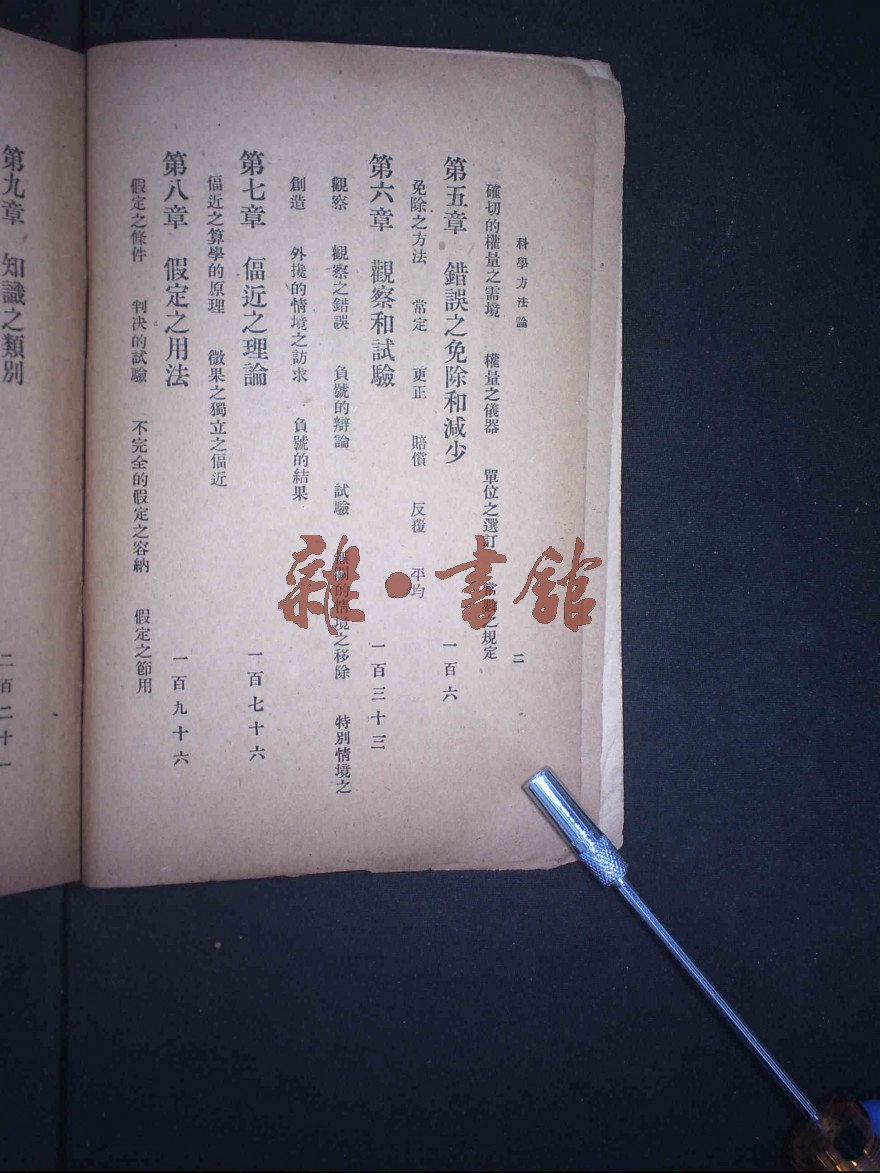 科學方法論 二
確切的權量之需境 權量之儀器 單位之選訂 常數之規定
第五章 錯誤之免除和減少 一百六
免除之方法 常定 更正 賠償 反覆 平均
第六章 觀察和試驗 一百三十三
觀察 觀察之錯誤 負號的辯論 試驗 的情境之移除 特別情境之
創造 外攙的情境之訪求 負號的結果
第七章 偪近之理論 一百七十六
偪近之算學的原理 微果之獨立之偪近
第八章 假定之用法 一百九十六
假定之條件 判決的試驗 不完全的假定之容納 假定之節用
第九章 知識之類別 二百二十一
雜·書館